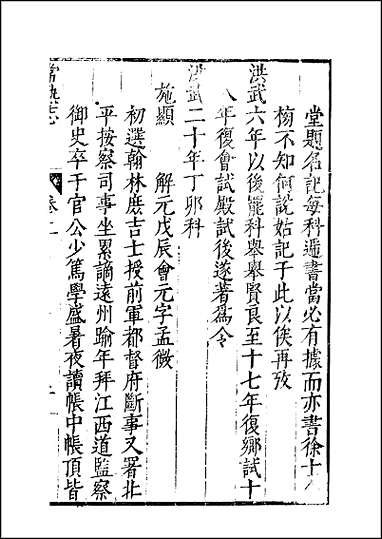 堂題名記每科逓書當必有據而亦書徐士
栯不知何說姑記于此以俟再攷
洪武六年以後罷科舉舉賢良至十七年復鄉試十
八年復會試殿試後遂著爲令
洪武二十年丁卯科
施顯 解元戊辰會元字孟微
初選翰林庶吉士授前軍都督府斷事又署北
平按察司事坐累謫遠州踰年拜江西道監察
御史卒于官公少篤學盛暑夜讀帳中帳頂皆
常熟
卷